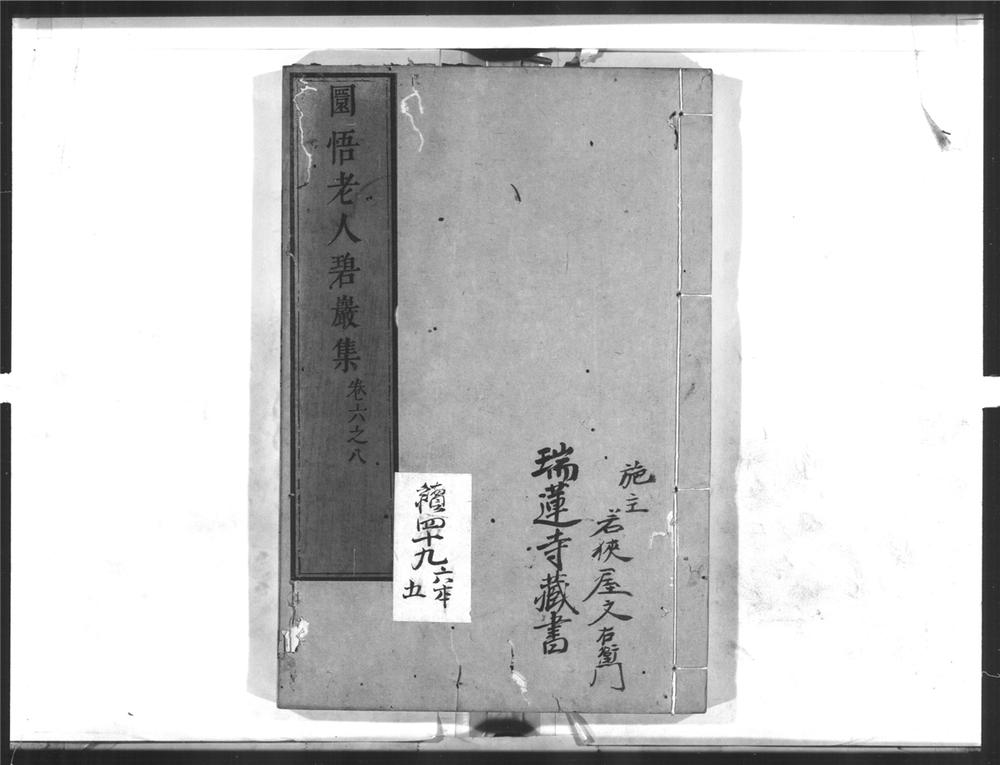 施主
若狹屋文右衛門
瑞蓮寺藏書
圜悟老人碧巖集 卷六之八
續四十九
六本
五